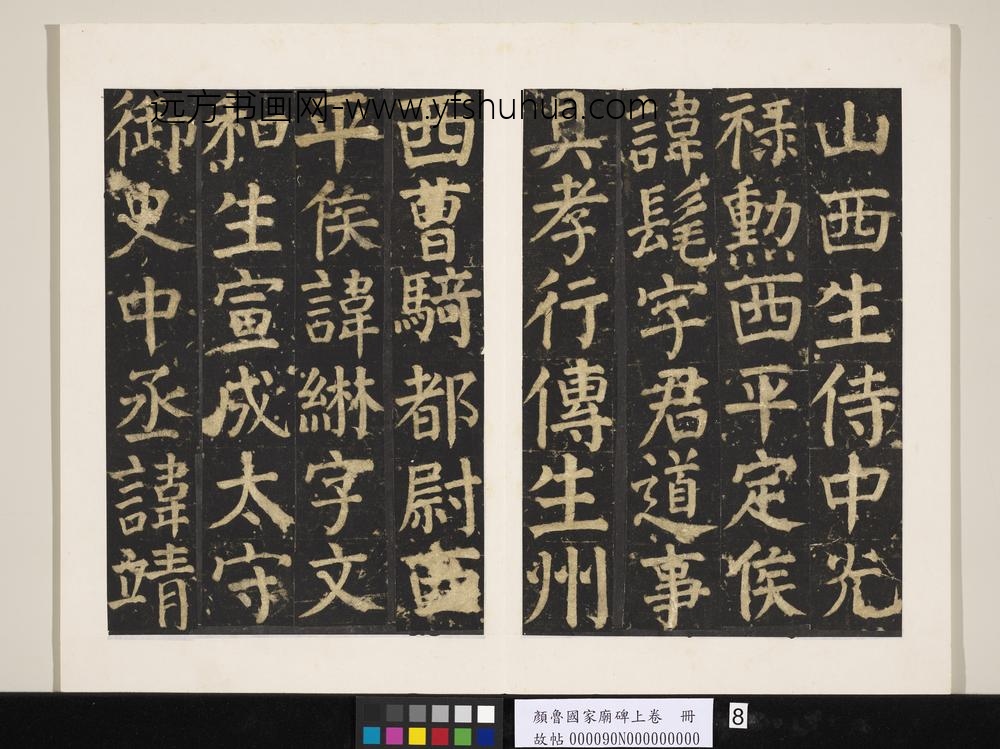 远方书画网 www.yfshuhua.com
山西生侍中光
祿勳西平定侯
諱髦字君道事
具孝行傳生州
西曹騎都尉西
平侯諱綝字文
和生宣成太守
御史中丞諱靖
顏魯國家廟碑上卷 冊
故帖000090N000000000
8